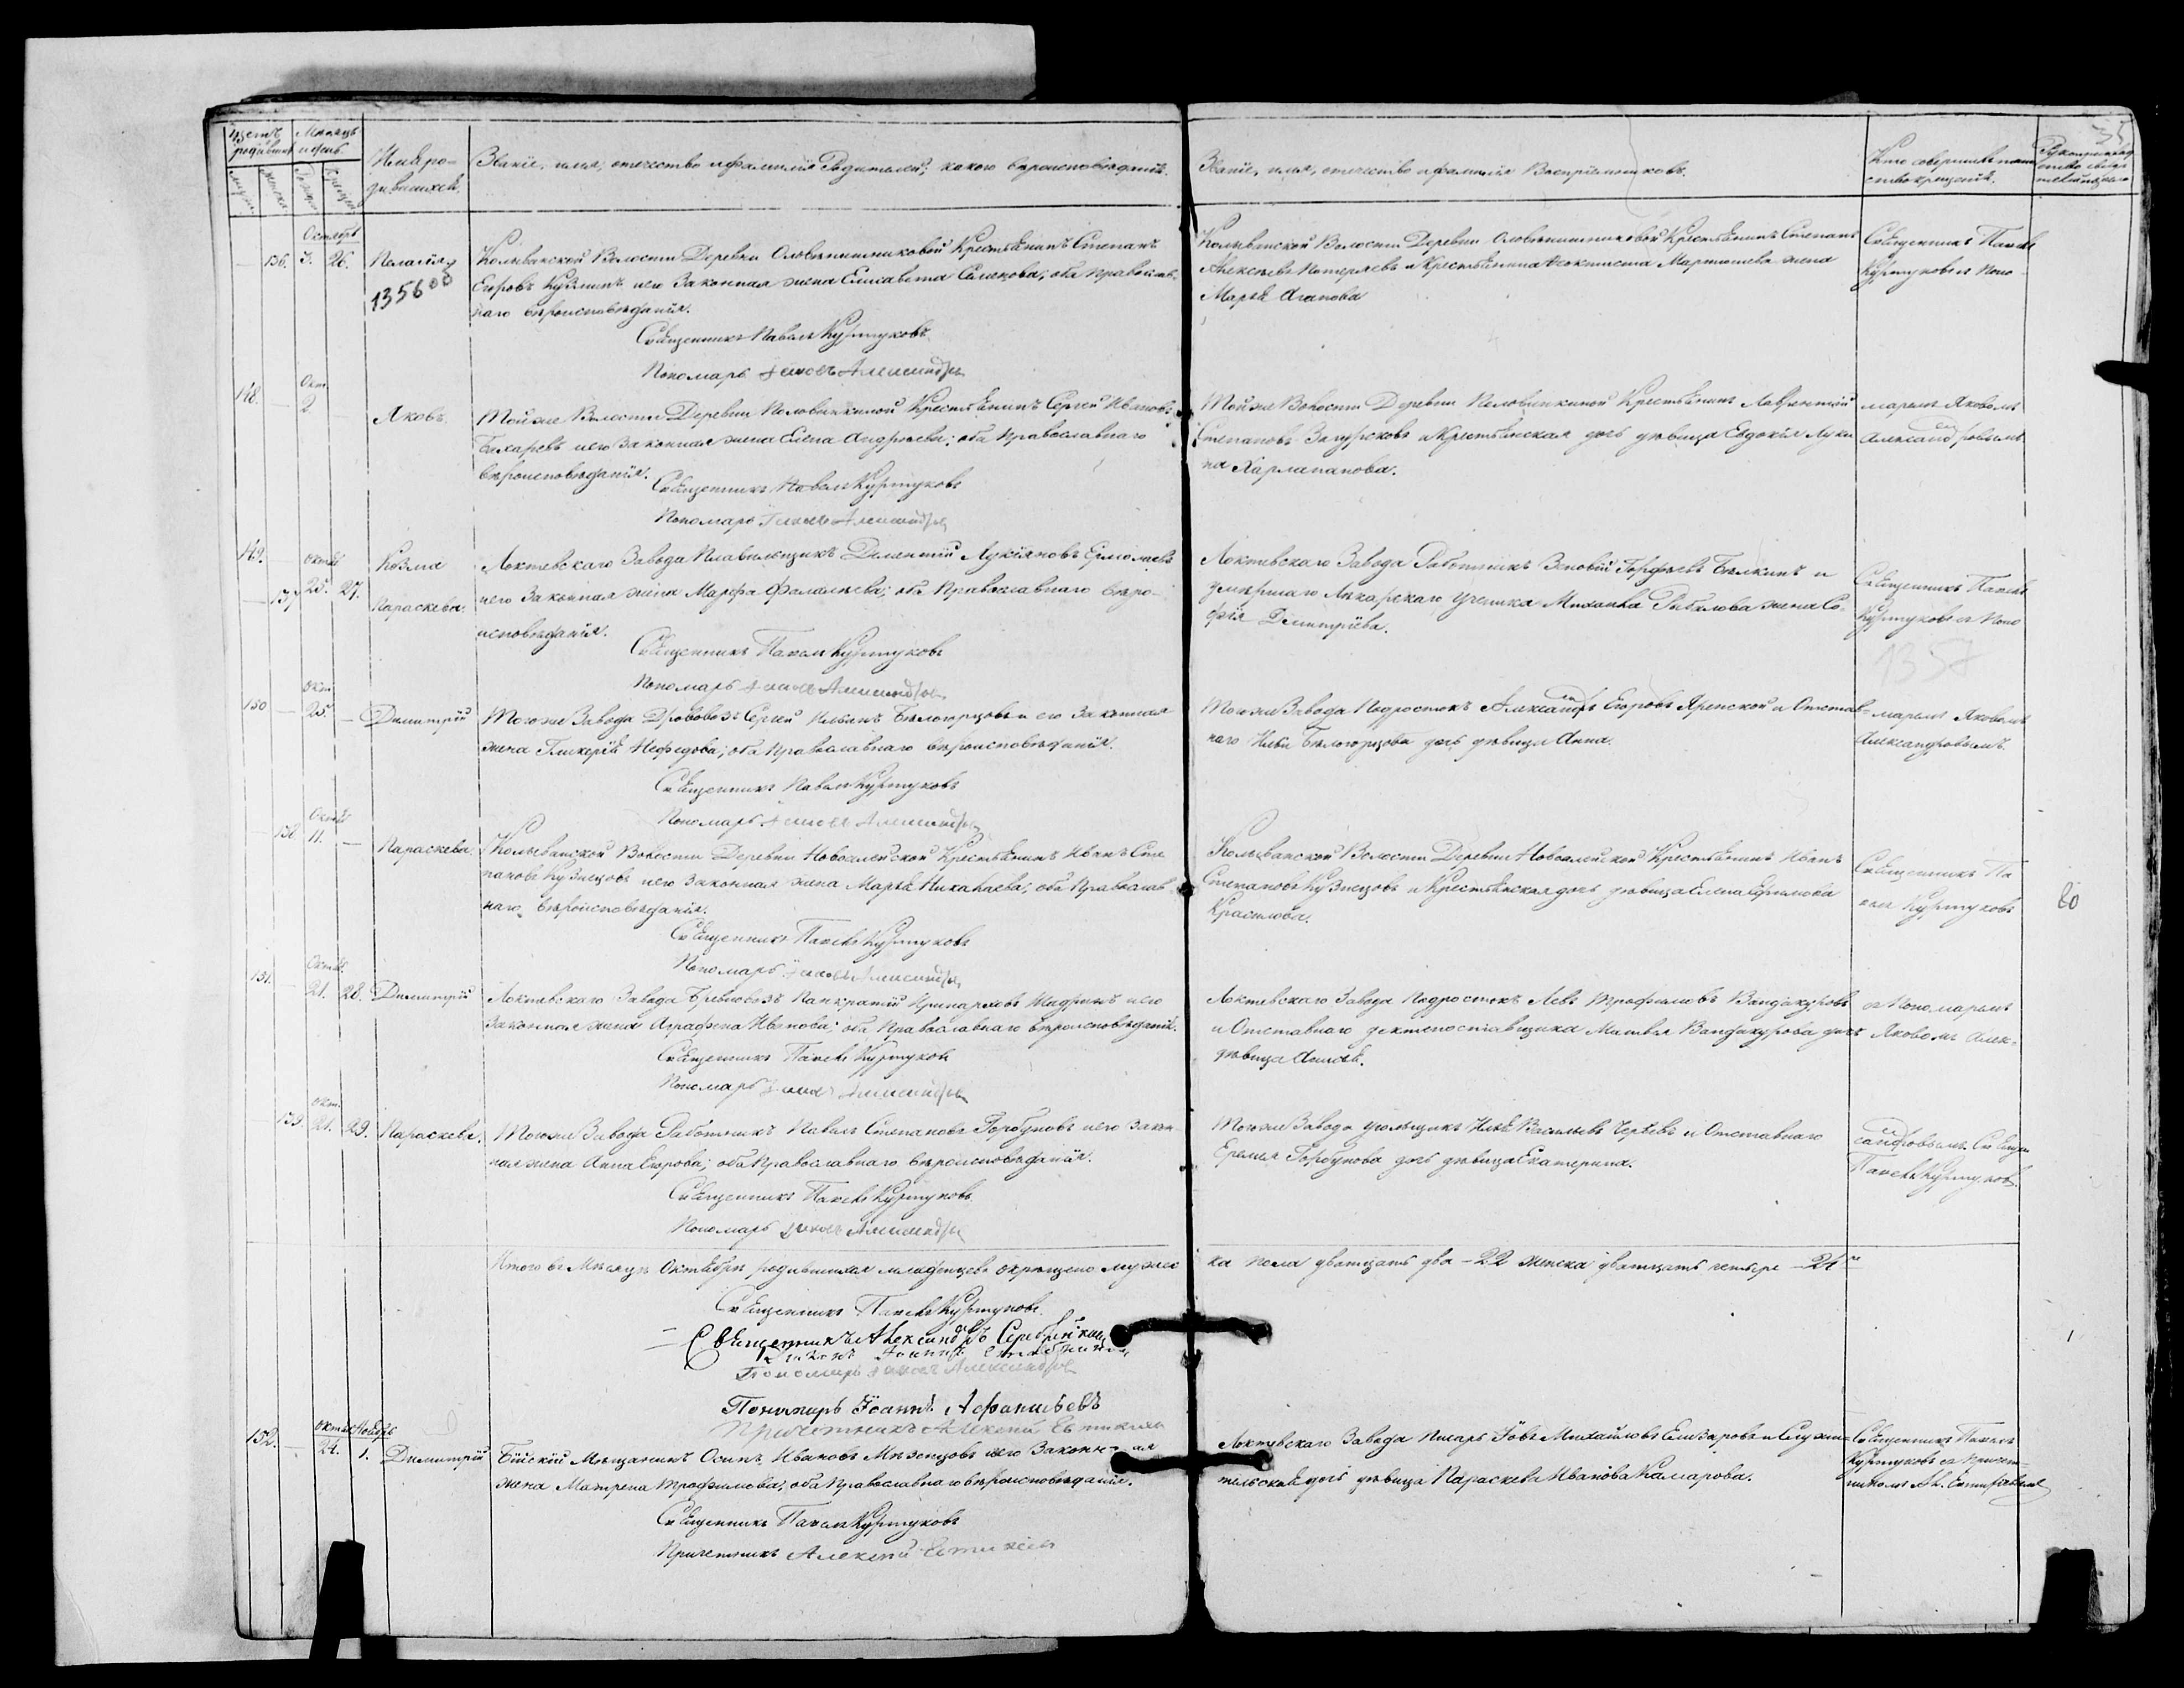 Щетъ родившихся
Мѣсяцъ и день
Имѣ ро-
дившихся.
Званіе, имя, отечество и фамилія Родителей; какого вѣроисповѣданія.
Званіе, имя, отечество и фамилія Воспріемниковъ.
Кто совершалъ таин-
ство крещенія.
35
Октябрь
136. 3. 26. Пелагія
1356
Колыванской Волости Деревни Оловянишниковой Крестьянинъ Степанъ
Егоровъ Кузминъ и его Законная жена Елисавета; оба Православ-
наго вѣроисповѣданія.
Священникъ Павелъ Куртуковъ
Пономарь Яковъ Александровъ
Колыванской Волости Деревни Оловянишниковой Крестьянинъ Степанъ
Алексѣевъ Потеряевъ и Крестьянина жена
Марья Агапова
Священникъ Павелъ
Куртуковъ съ Поно-
148. Окт. 2 Яковъ.
Тойже Волости Деревни Половинкиной Крестьянинъ Сергей Ивановъ
Бахаревъ и его законная жена Елена Андреева; оба Православнаго
вѣроисповѣданія.
Священникъ Павелъ Куртуковъ
Пономарь Яковъ Александровъ
Тойже Волости Деревни Половинкиной Крестьянинъ Лаврентій
Степановъ и Крестьянская дочь дѣвица Евдокія Луки-
на Харлапанова.
маремъ Яковомъ
Александровымъ
149. Козма
137 Октяб. 25. 27. Параскева.
Локтевскаго Завода Плавильщикъ Лукіяновъ Ермолаевъ
и его Законная жена Марфа Фалалѣева; оба Православнаго вѣро-
исповѣданія.
Священникъ Павелъ Куртуковъ
Пономарь Яковъ Александровъ
Локтевскаго Завода Работникъ Зиновій Бѣлкинъ и
умершаго Лѣкарскаго ученика Михаила жена Со-
фія Димитріева.
Священникъ Павелъ
Куртуковъ съ Поно
1357
150 Окт. 25. Димитрій
Тогоже Завода Дрововозъ Сергей Ильинъ Бѣлогорцовъ и его Законная
жена Гликерія Нефедова; оба Православнаго вѣроисповѣданія.
Священникъ Павелъ Куртуковъ
Пономарь Яковъ Александровъ
Тогоже Завода Подростокъ Александръ Егоровъ Яренской и Отстав-
наго Ильи Бѣлогорцова дочь дѣвица Анна.
маремъ Яковомъ
Александровымъ.
138 Октяб. 11. Параскева.
Колыванской Волости Деревни Новоалейской Крестьянинъ Иванъ Сте-
пановъ Кузнецовъ и его законная жена Марья Николаева; оба Православ-
наго вѣроисповѣданія.
Священникъ Павелъ Куртуковъ
Пономарь Яковъ Александровъ
Колыванской Волости Деревни Новоалейской Крестьянинъ Иванъ
Степановъ Кузнецовъ и Крестьянская дочь дѣвица Елена Ефимова
Красилова.
Священникъ Па
велъ Куртуковъ
80
151. Октяб. 21. 28. Димитрій
Локтевскаго Завода Бревновозъ Панкратій Шадринъ и его
Законная жена Аграфена Иванова; оба Православнаго вѣроисповѣданія.
Священникъ Павелъ Куртуковъ
Пономарь Яковъ Александровъ
Локтевскаго Завода Подростокъ Левъ Трофимовъ Вандакуровъ
и Отставнаго Матвея Вандакурова дочь
дѣвица Анисья.
съ Пономаремъ
Яковомъ Алек-
139. Окт. 21. 29. Параскева.
Тогоже Завода Работникъ Павелъ Степановъ Горбуновъ и его Закон-
ная жена Анна Егорова; оба Православнаго вѣроисповѣданія.
Священникъ Павелъ Куртуковъ
Пономарь Яковъ Александровъ
Тогоже Завода угольщикъ Илья Васильевъ и Отставнаго
Еремея Горбунова дочь дѣвица Екатерина.
сандровымъ. Священ
Павелъ Куртуковъ.
Итого въ Мѣсяцѣ Октябрѣ родившихся младенцевъ окрещено мужес
ка пола дватцать два - 22 женска дватцать четыре - 24
Священникъ Павелъ Куртуковъ
Священникъ Александръ Серебрянской
Пономарь Яковъ Александровъ
Пономарь Іоаннъ Афанасьевъ
Причетникъ Алексей
152. Октяб. 24. Ноябрь 1. Димитрій
Бійскій Мѣщанинъ Осипъ Ивановъ и его Законная
жена Матрена Трофимова; оба Православнаго вѣроисповѣданія.
Священникъ Павелъ Куртуковъ
Причетникъ Алексей
Локтевскаго Завода Писарь Іовъ Михайловъ Елизаровъ и Служи-
тельская дочь дѣвица Параскева Иванова Камарова.
Священникъ Павелъ
Куртуковъ съ Причет-
никомъ Ал.